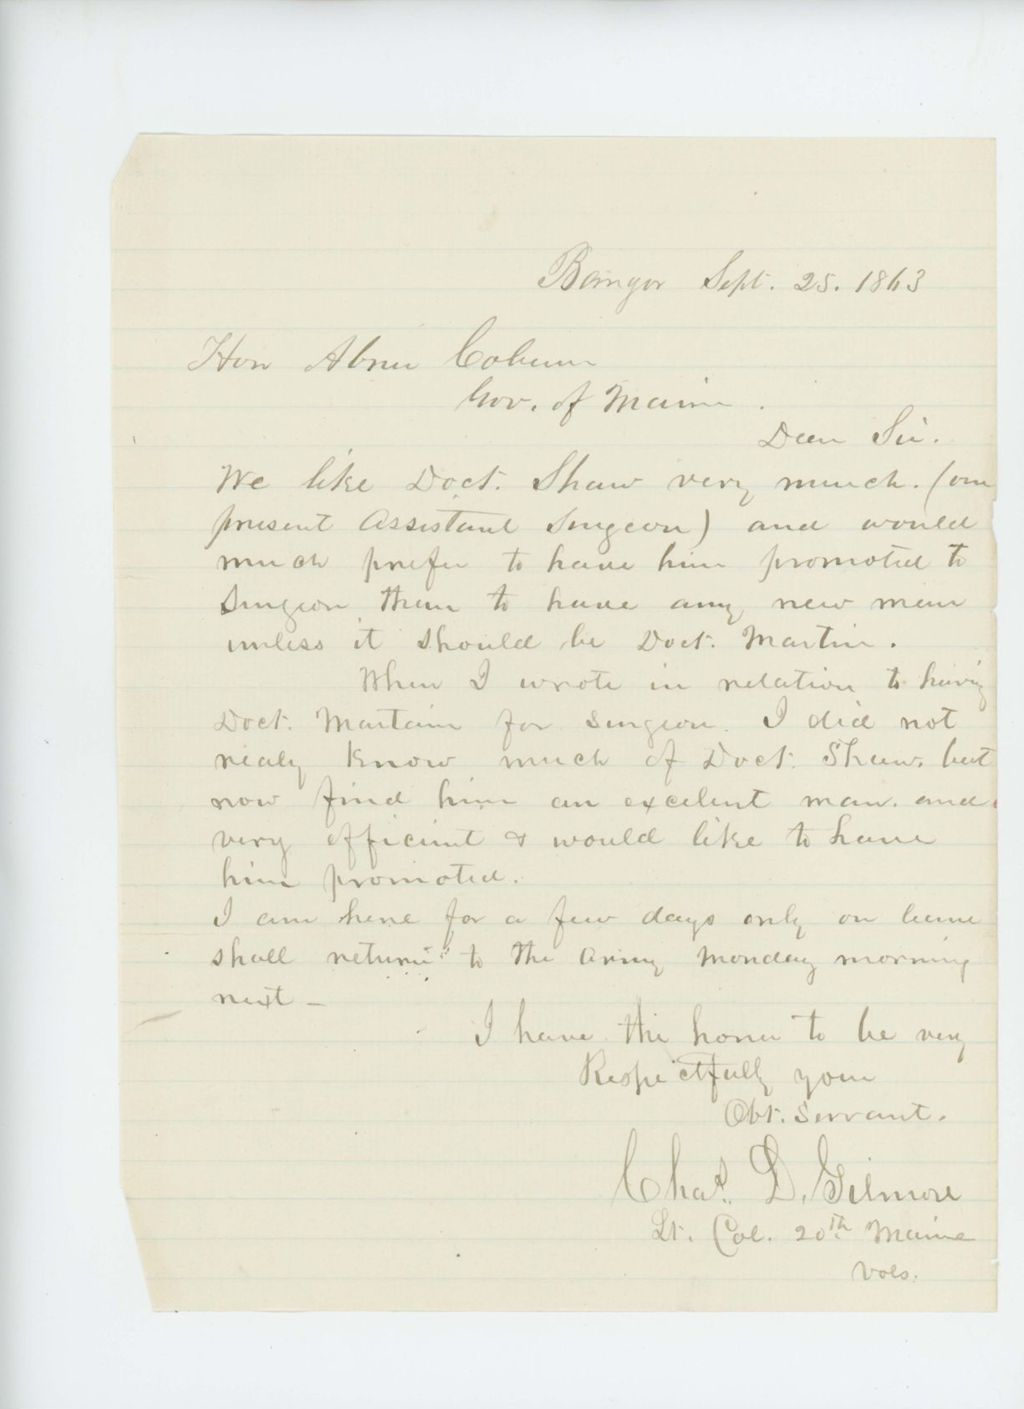 Bangor Sept. 25. 1863
Hon Abner Coburn
Gov. of Maine.
Dear Sir.
We like Doct. Shaw very much. (our
present Assistant Surgeon) and would
much prefer to have him promoted to
Surgeon than to have any new man
unless it should be Doct. Martin.
When I wrote in relation to having
Doct. Martain for Surgeon I did not
realy know much of Doct. Shaw. but
now find him an excelent man. and
very efficient & would like to have
him promoted.
I am here for a few days only on leave
shall return to the army Monday morning
next —
I have the honor to be very
Respectfully your
Obt. Servant.
Chas. D. Gilmore
Lt. Col. 20th Maine
Vols.